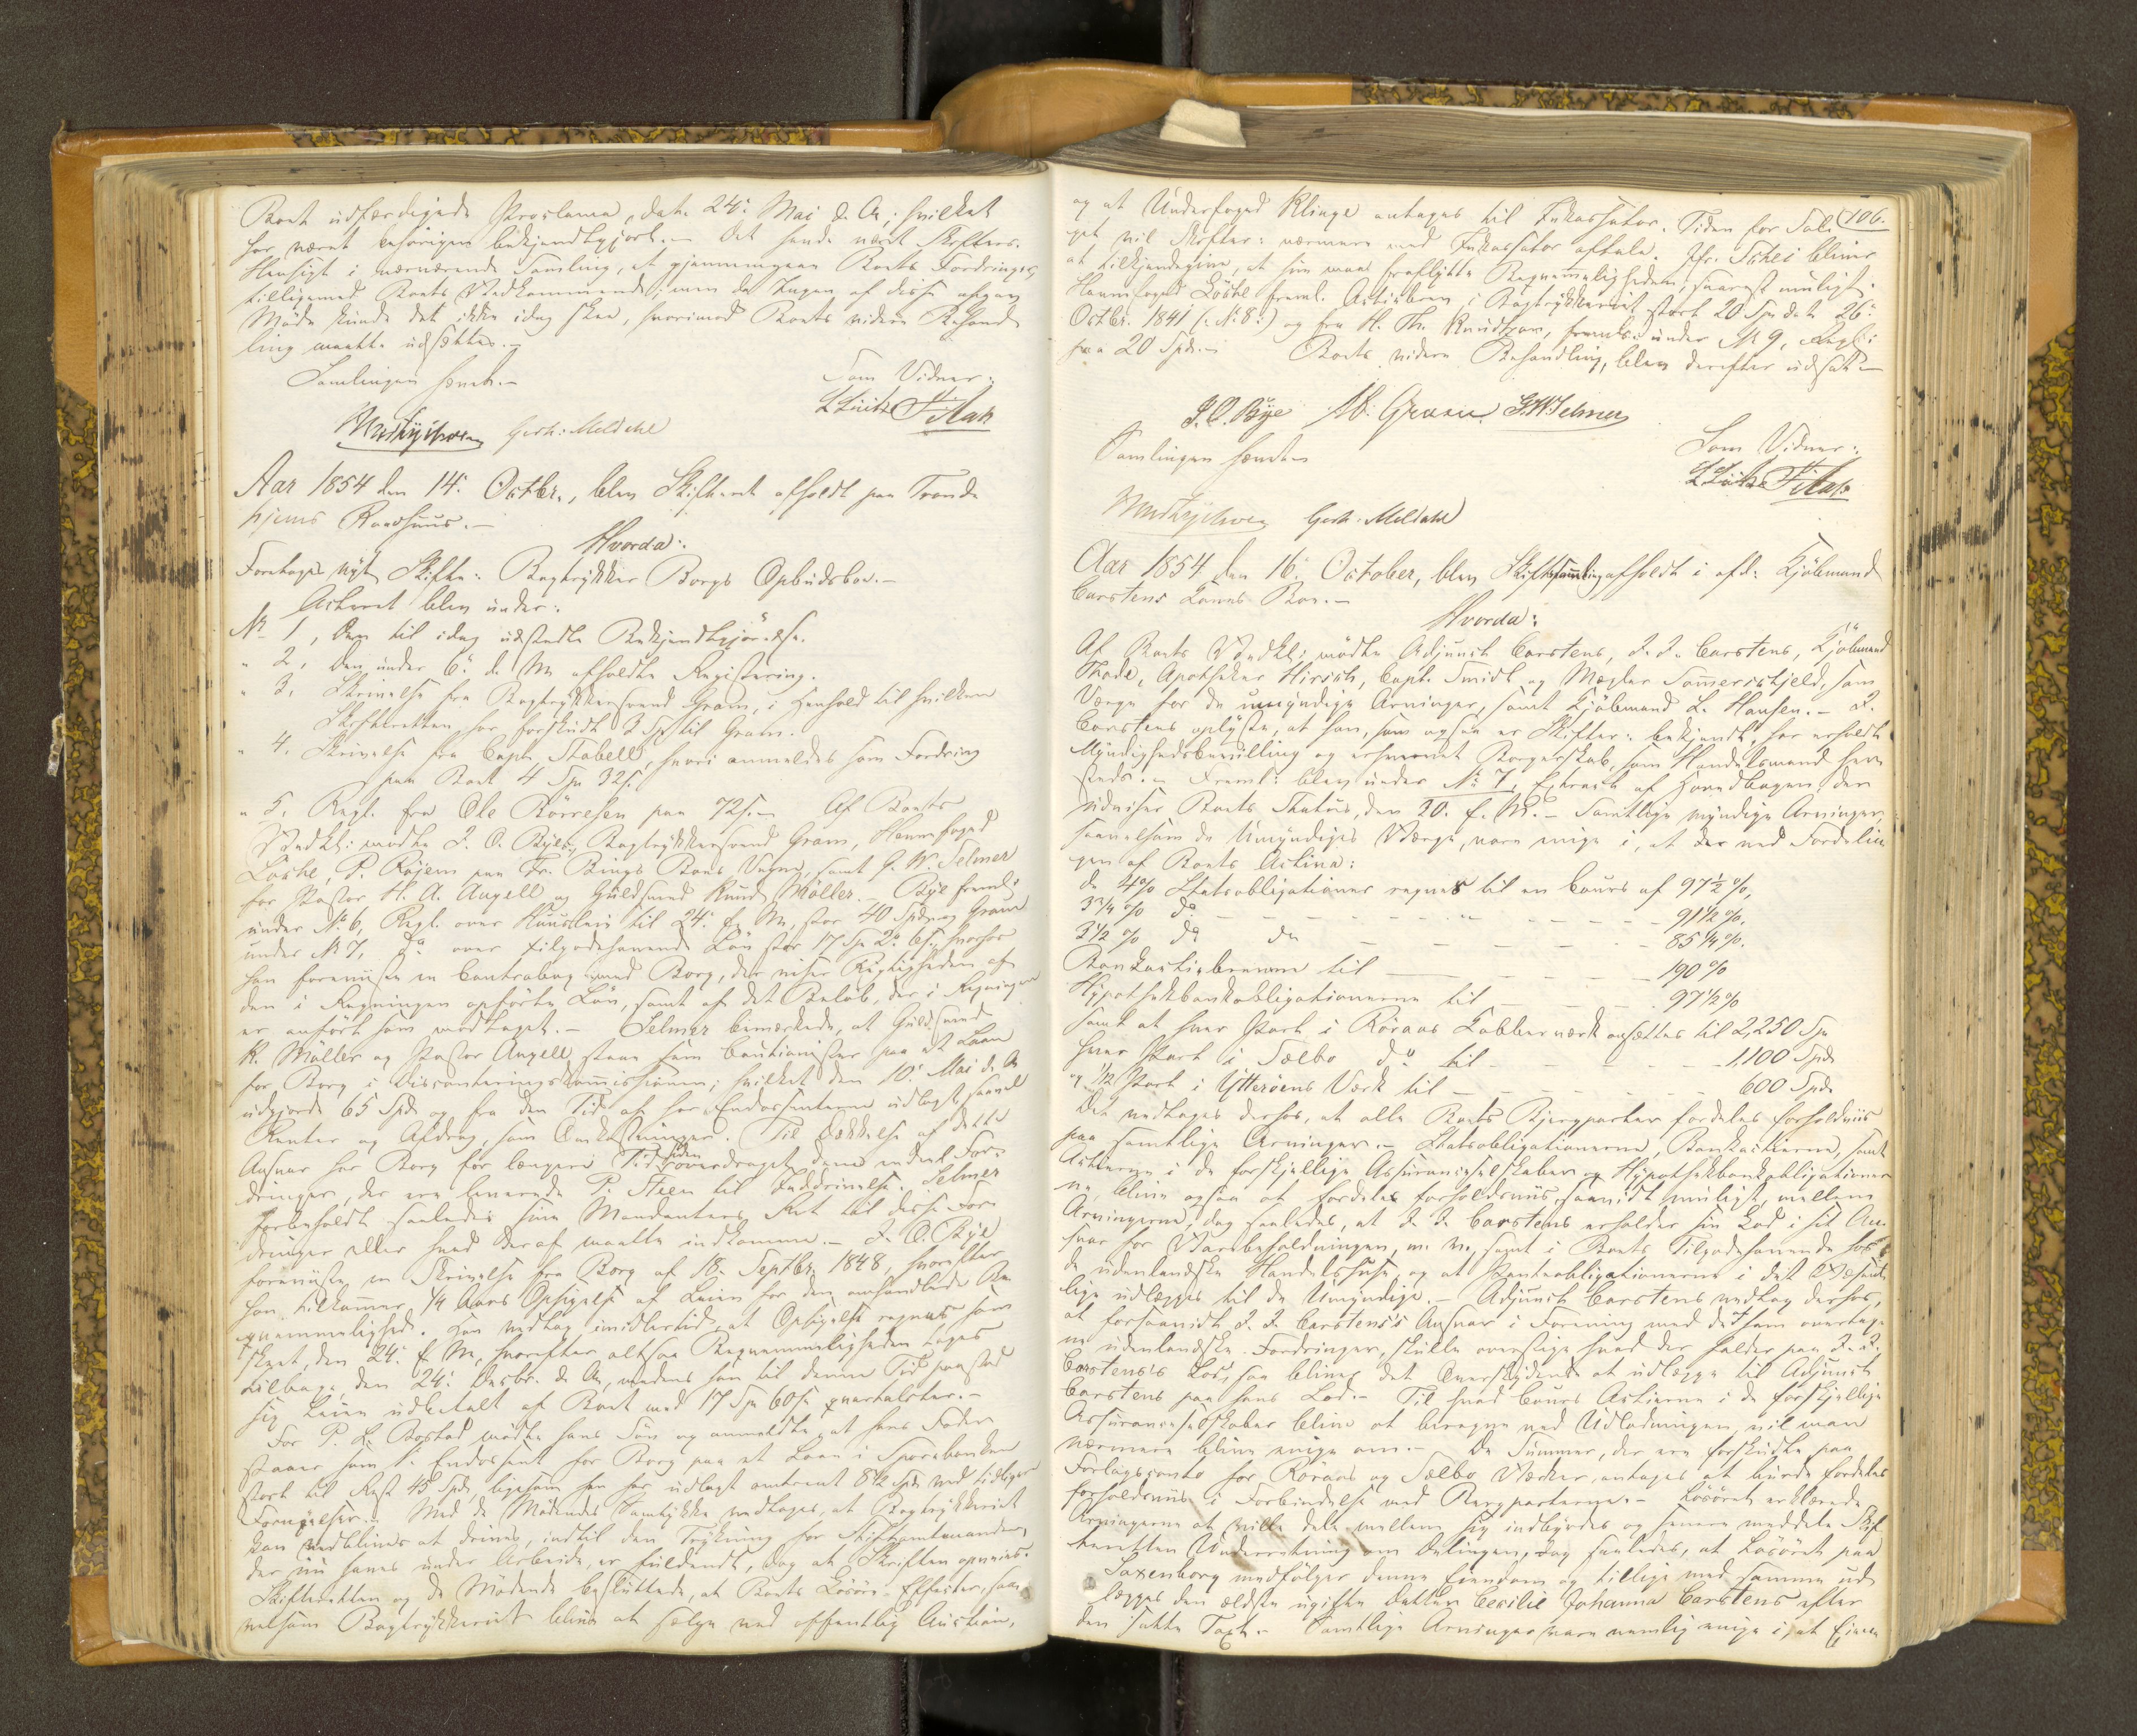 Boet udfærdigede Proclama, dat. 24. Mai d. A., hvilket
har været behørigen bekjendtgjort.— Det havde været Skifterr.
Hensigt i nærværende Samling, at gjennemgaae Boets Fordringer,
tilligemed Boets Vedkommende; men da Ingen af disse
Møde kunde det ikke idag skee, hvorimod Boets videre Behand
ling maatte udsættes.—
Samlingen hævet.—
Som Vidner:
Gerh: Meldahl
Aar 1854 den 14. Octbr., blev Skifteret afholdt paa Trond
hjems Raadhuus.—
Hvorda:
Foretages nyt Skifte: Bogtrykker Borgs Opbudsbo.—
Acteret blev under:
No 1, Den til idag udstedte Bekjendtgjørelse.
" 2, Den under 6. d. M. afholdte Registrering.
" 3, Skrivelse fra Bogtrykkersvend Gram, i Henhold til hvilken
Skifteretten har forskudt 3 Sp til Gram.
" 4, Skrivelse fra Capt. Stabell, hvori anmeldes som Fordring
paa Boet 4 Sp 32 s.
" 5, Regl. fra Ole Børresen paa 72 s.— Af Boets
Vedkl: mødte J. O. Bye, Bogtrykkersvend Gram, Havnefoged
Løske, P. Røjem paa Fr. Bings Boes Vegne, samt J. W. Selmer
for Pastor H. A. Angell og Guldsmed Knud Møller. Bye freml:
under No 6, Regl. over Huusleie til 24. f. M., stor 40 Spd og Gram
under No 7, do over tilgodehavende Løn stor 17 Sp 2 # 6 s., hvorhos
han foreviiste en Contrabog med Borg, der viser Rigtigheden af
den i Regningen opførte Løn, samt af det Beløb, der i Regningen
er anført som modtaget.— Selmer bemærkede, at Guldsmed
K. Møller og Pastor Angell staae som Cautionister paa et Laan
for Borg i Disconteringscommissionen; hvilket den 10. Mai d. A.
udgjorde 65 Spd og fra den Tid af har Endossenterne udlagt saavel
Renter og Afdrag, som Omkostninger. Til Dækkelse af dette
Ansvar har Borg for længere Tid siden overdraget dem endeel For-
dringer, der ere leverede P. Steen til Inddrivelse. Selmer
forbeholdt saaledes sine Mandanters Ret til disse For-
dringer eller hvad deraf maatte indkomme.— J. O. Bye
foreviiste en Skrivelse fra Borg af 18. Septbr. 1848, hvorefter
han tilkommer 1/4 Aars Opsigelse af Leien for den omhandlede Be
qvemmelighed. Han vedtog imidlertid, at Opsigelse regnes som
skeet, den 24. f. M., hvorefter altsaa Beqvemmeligheden tages
tilbage den 24. Decbr. d. A., medens han til denne Tid paastod
sig Leien udbetalt af Boet med 17 Sp 60 s qvartaliter.—
For P. L. Bostad mødte hans Søn og anmeldte, at hans Fader
staaer som 1. Endossent for Borg paa et Laan i Sparebanken
stort til Rest 45 Spd, ligesom han har udlagt omtrent 8 1/2 Spd ved tidligere
Fornyelser.— Med de Mødendes Samtykke vedtages, at Bogtrykkeriet
kan vedblive at drives, indtil den Trykning for Stiftamtmanden,
der nu haves under Arbeide, er fuldendt, dog at Skriften opveies.
Skifteretten og de Mødende besluttede, at Boets Løsøre-Effecter, saa
velsom Bogtrykkeriet blive at sælge ved offentlig Auction,
106.
og at Underfoged Klinge antages til Incassator. Tiden for Sal
get vil Skifter: nærmere med Incassator aftale. Jfr. Schei bliver
at tilkjendegive, at hun maa fraflytte Beqvemmeligheden, snarest muligt.
Havnefoged Løske freml. Actiebrev i Bogtrykkeriet stort 20 Sp dat. 26.
Octbr. 1841 (: No 8 :) og fra H. Th. Knudtzon, fremlæ. under No 9, Regl:
paa 20 Spd.— Boets videre Behandling, blev derefter udsat.—
J. O. Bye Ab: Gram J. W. Selmer
Samlingen hævet.—
Som Vidner:
Gerh: Meldahl
Aar 1854 den 16. October, blev Skiftesamling afholdt i afd: Kjøbmand
Carstens Lorns Boe.—
Hvorda:
Af Boets Vedkl: mødte Adjunct Carstens, J. J. Carstens, Kjøbmand
Thode, Apotheker Hirsch, Capt. Smidt og Mægler Sommerschjeld, som
Værge for de umyndige Arvinger, samt Kjøbmand L. Hansen.— J.
Carstens oplyste, at han, som ogsaa er Skifter: bekjendt, har erholdt
Myndighedsbevilling og erhvervet Borgerskab, som Handelsmand her
steds.— Freml: blev under No 7, Extract af Hovedbogen, der
udviser Boets Status, den 20. f. M.— Samtlige myndige Arvinger,
saavelsom de Umyndiges Værge, vare enige i, at der ved Fordelin
gen af Boets Activa:
de 4% Statsobligationer regnes til en Cours af 97 1/2 %,
3 3/4 % do — — — — — — 91 1/2 %.
3 1/2 % do do — — — — 85 1/4 %.
Bankactiebrevene til — — — — 190 %
Hypothekbankobligationerne til — — — 97 1/2 %
samt at hver Part i Røraas Kobberværk ansættes til 2,250 Sp
hver Part i Sælbo do til — — — — 1,100 Spd
og 1/2 Part i Ytterøens Værk til — — — 600 Spd
Det vedtages derhos, at alle Boets Bjergparter fordeles forholdsviis
paa samtlige Arvinger.— Statsobligationerne, Bankactierne, samt
Actierne i de forskjellige Assuranceselskaber og Hypothekbankobligationer
ne, blive ogsaa at fordeles forholdsviis, saavidt muligt, mellem
Arvingerne, dog saaledes, at J. J. Carstens erholder sin Lod i sit An-
svar for Varebeholdningen, m. m., samt i Boets Tilgodehavende hos
de udenlandske Handelshuse, og at Panteobligationerne i det Væsent
lige udlægges til de Umyndige.— Adjunct Carstens vedtog derhos,
at forsaavidt J. J. Carstens's Ansvar i Forening med de af ham overtag
ne udenlandske Fordringer, skulle overstige hvad der falder paa J. J.
Carstens's Lod, saa bliver det Overskydende at udlægge til Adjunct
Carstens paa hans Lod.— Til hvad Cours Actierne i de forskjellige
Assuranceselskaber blive at beregne ved Udlodningen, vil man
nærmere blive enige om.— De Summer, der ere forskudte paa
Forlagsconto for Røraas og Sælbo Værker, antages at burde fordeles
forholdsviis i Forbindelse med Bergparterne.— Løsøret erklærede
Arvingerne at ville dele mellem sig indbyrdes og senere meddele Skif
teretten Underretning om Delingen, dog saaledes, at Løsøret paa
Saxenborg medfølger denne Eiendom og tillige med samme ud
lægges den ældste ugifte Datter Cecilie Johanna Carstens efter
den satte Taxt.— Samtlige Arvinger vare nemlig enige i, at Eien